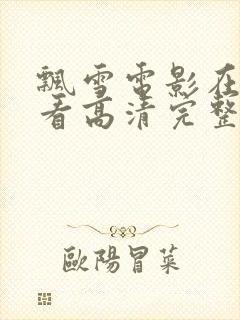 飄雪電影在
看高清完整
歐陽冒菜